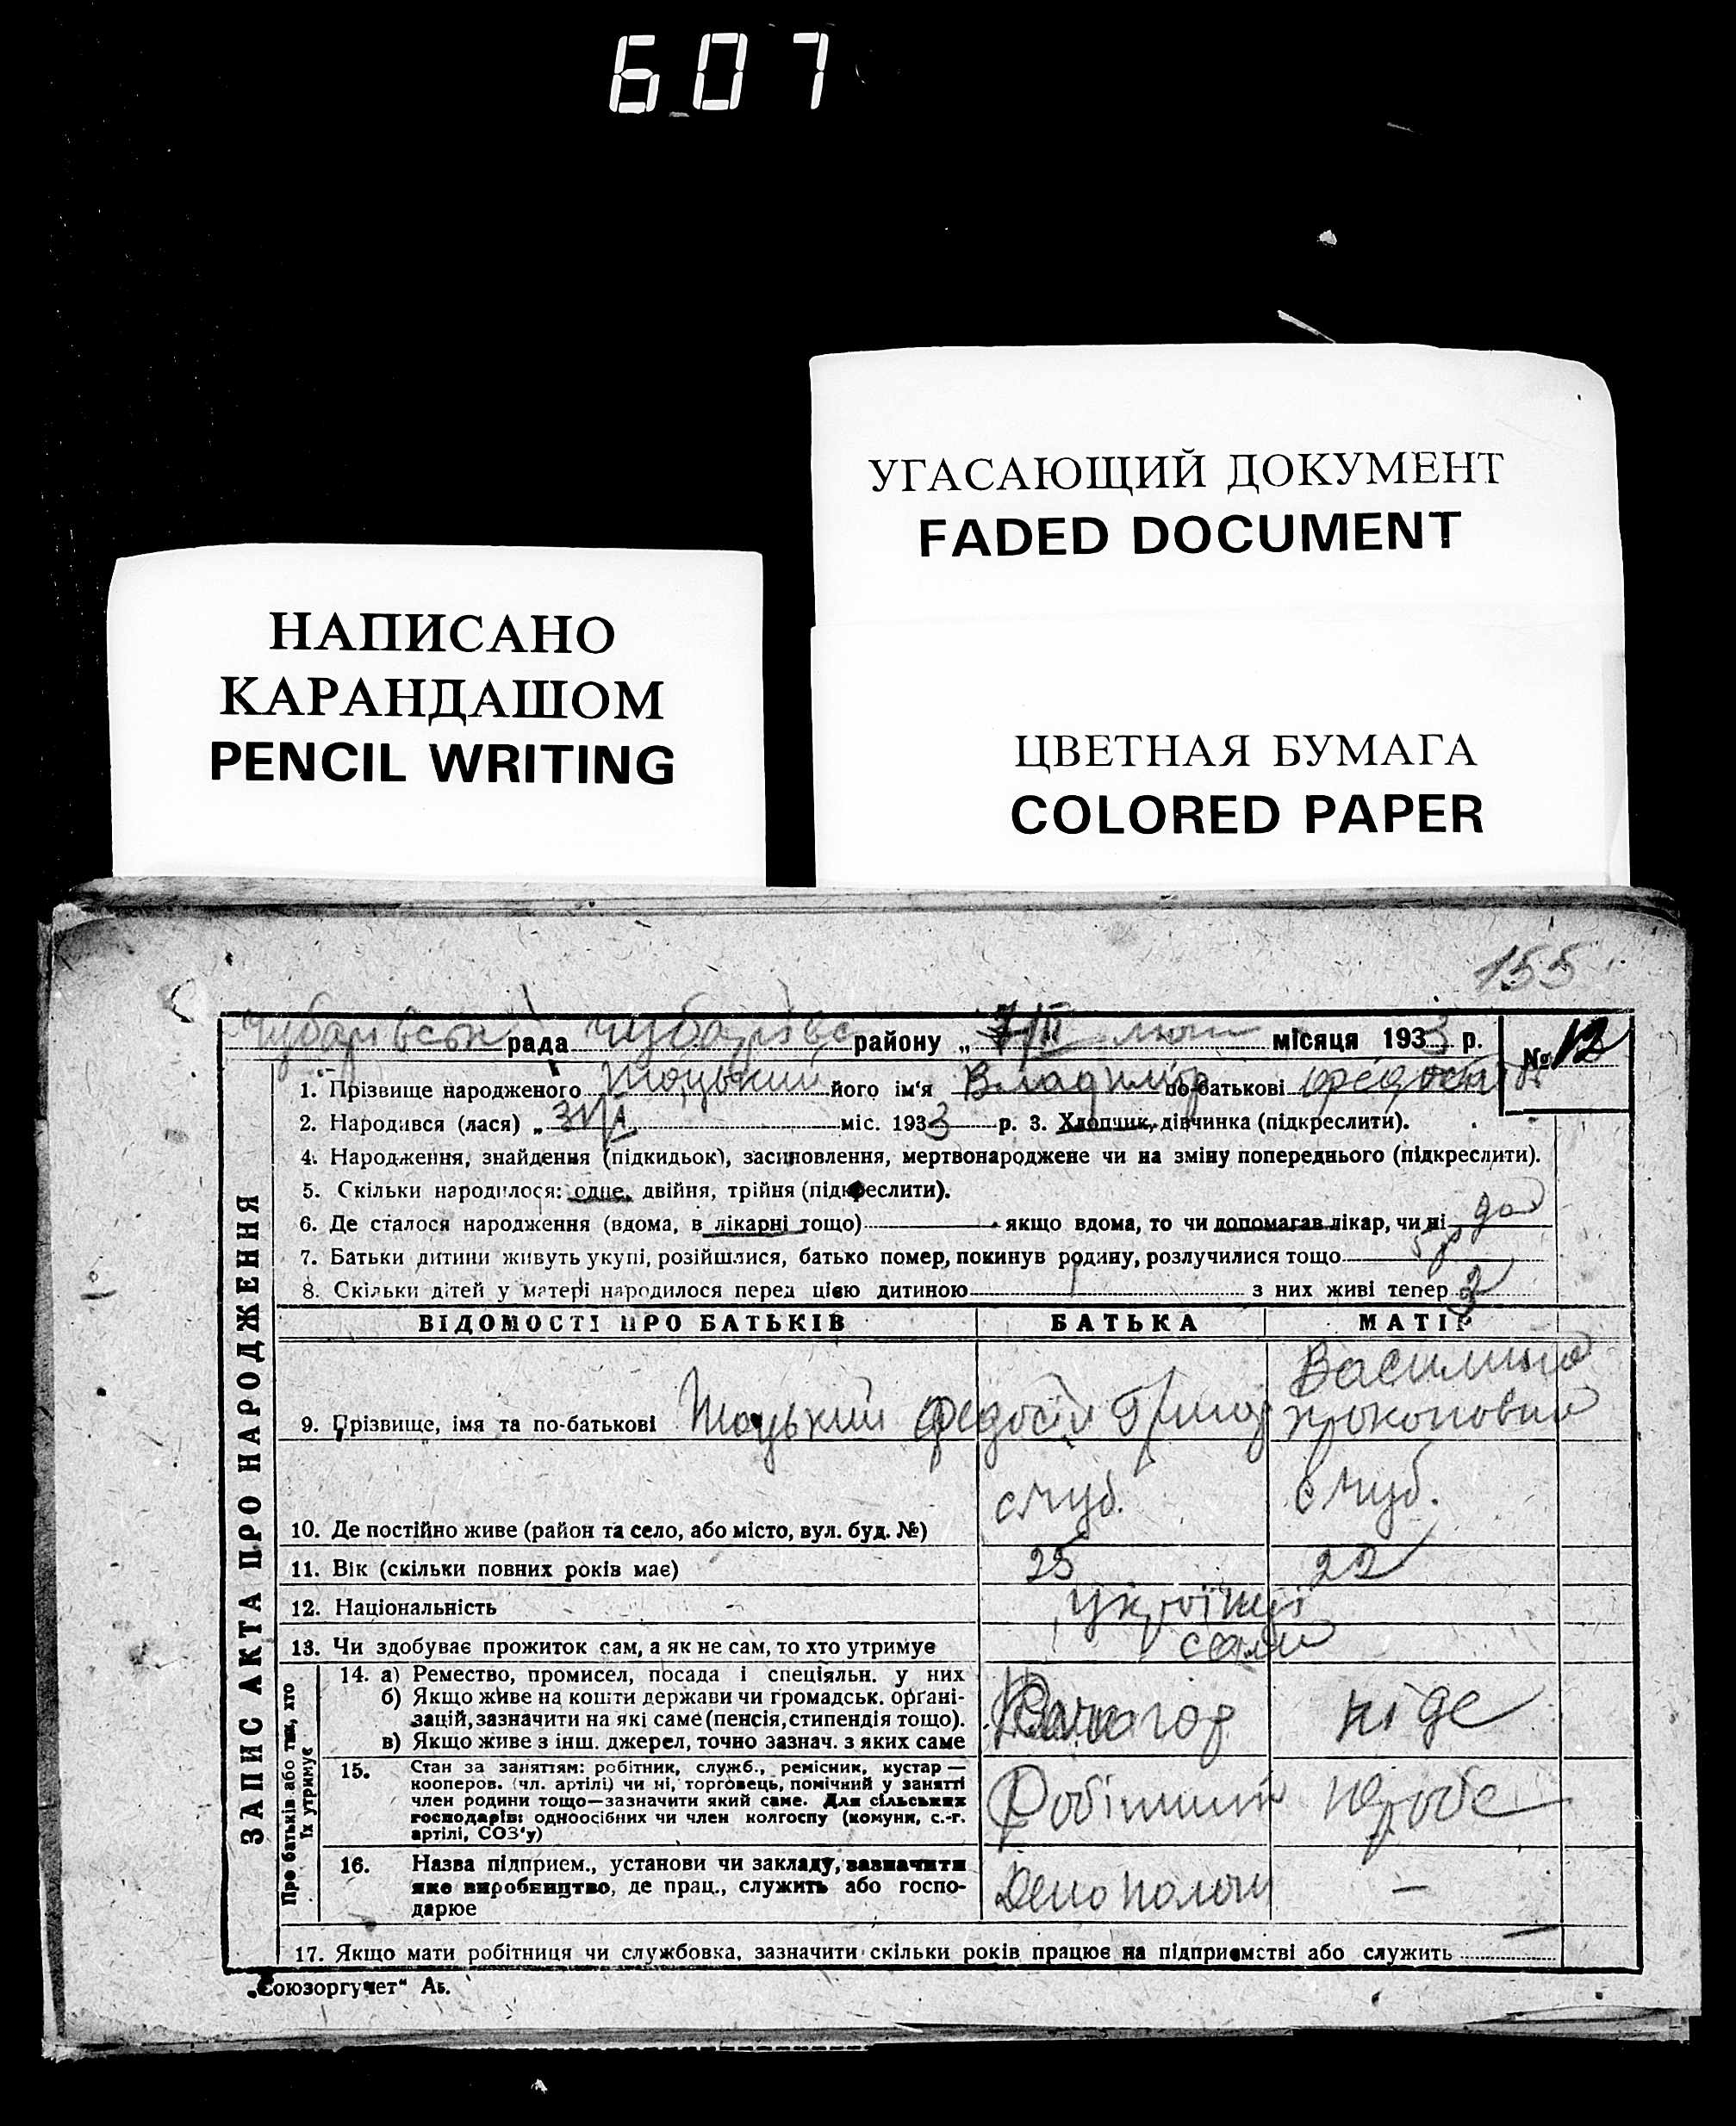 607
УГАСАЮЩИЙ ДОКУМЕНТ
FADED DOCUMENT
НАПИСАНО
КАРАНДАШОМ
PENCIL WRITING
ЦВЕТНАЯ БУМАГА
COLORED PAPER
155
Чубарівськ рада Чубарівс району „ 7/II лют місяця 1933 р. № 12
1. Прізвище народженого Тоцький його ім'я Владимір по-батькові Федосій
2. Народився (лася) „ 31/I міс. 1933 р. 3. Хлопчик, дівчинка (підкреслити).
4. Народження, знайдення (підкидьок), засиновлення, мертвонароджене чи на зміну попереднього (підкреслити).
5. Скільки народилося: одне, двійня, трійня (підкреслити).
6. Де сталося народження (вдома, в лікарні тощо) якщо вдома, то чи допомагав лікар, чи ні
7. Батьки дитини живуть укупі, розійшлися, батько помер, покинув родину, розлучилися тощо
8. Скільки дітей у матері народилося перед цією дитиною з них живі тепер 2
ВІДОМОСТІ ПРО БАТЬКІВ БАТЬКА МАТІР
9. Прізвище, імя та по-батькові Тоцький Федосій Григор Василина Прокоповна
10. Де постійно живе (район та село, або місто, вул. буд. №) с Чуб. с Чуб.
11. Вік (скільки повних років має) 25 22
12. Національність Українці
13. Чи здобуває прожиток сам, а як не сам, то хто утримує сами
14. а) Ремество, промисел, посада і спеціяльн. у них
б) Якщо живе на кошти держави чи громадськ. органі-
зацій, зазначити на які саме (пенсія, стипендія тощо). ніде
в) Якщо живе з інш. джерел, точно зазнач. з яких саме
15. Стан за заняттям: робітник, служб., ремісник, кустар —
кооперов. (чл. артілі) чи ні, торговець, помічний у занятті
член родини тощо—зазначити який саме. Для сільських
господарів: одноосібних чи член колгоспу (комуни, с.-г.
артілі, СОЗ'у) Робітник
16. Назва підприєм., установи чи закладу, зазначити
яке виробництво, де прац., служить або госпо-
дарюе Депо —
17. Якщо мати робітниця чи службовка, зазначити скільки років працює на підприємстві або служить —
ЗАПИС АКТА ПРО НАРОДЖЕННЯ
Про батьків або тих, хто
їх утримує
„Союзоргучет“ Аь.